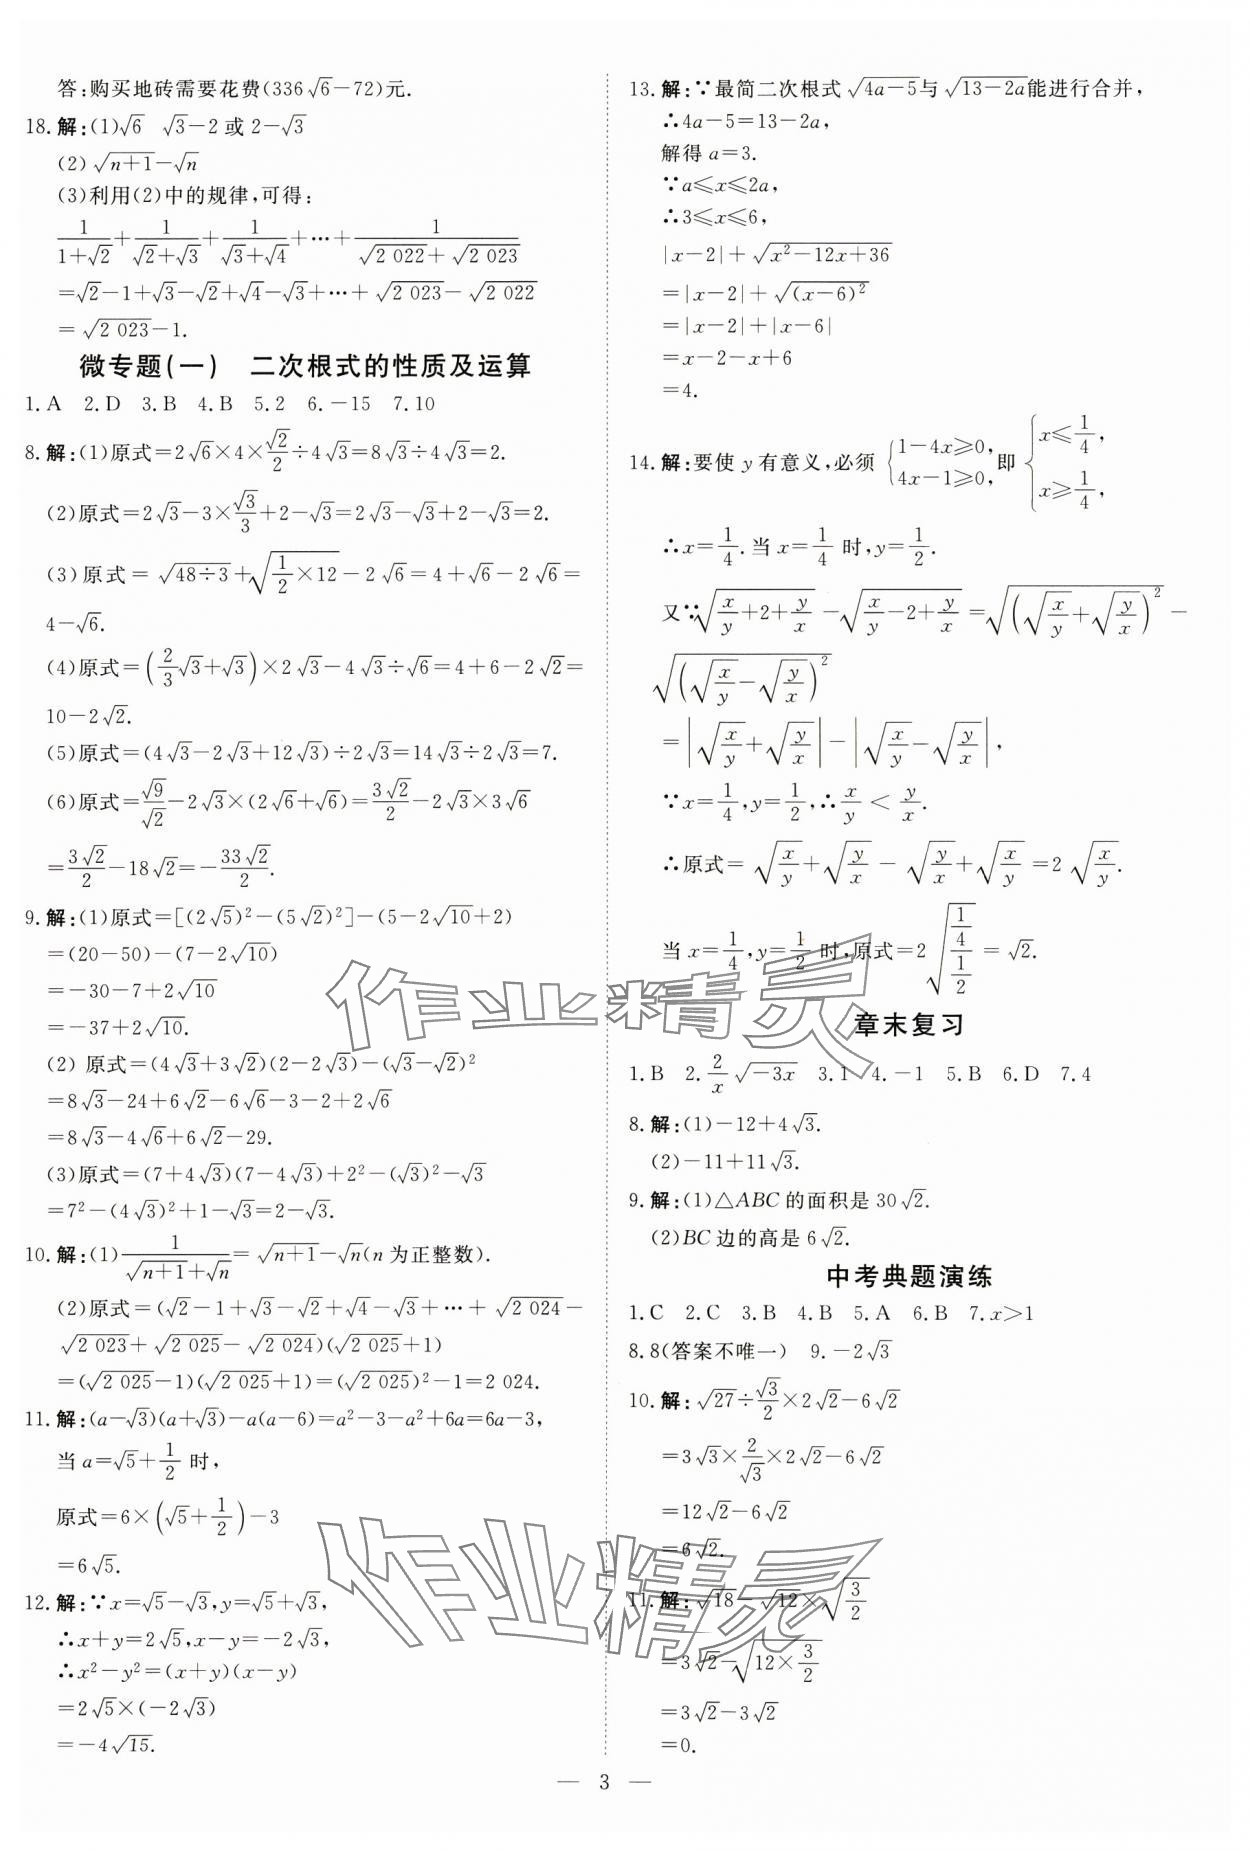 答:购买地砖需要花费(336√6-72)元.
18.解:(1)√6　√3-2或2-√3
(2)√(n+1)-√n
(3)利用(2)中的规律,可得:
1/(1+√2)+1/(√2+√3)+1/(√3+√4)+…+1/(√(2 022)+√(2 023))
=√2-1+√3-√2+√4-√3+…+√(2 023)-√(2 022)
=√(2 023)-1.
微专题(一)　二次根式的性质及运算
1.A　2.D　3.B　4.B　5.2　6.-15　7.10
8.解:(1)原式=2√6×4×√2/2÷4√3=8√3÷4√3=2.
(2)原式=2√3-3×√3/3+2-√3=2√3-√3+2-√3=2.
(3)原式=√(48÷3)+√(1/2×12)-2√6=4+√6-2√6=
4-√6.
(4)原式=(2/3√3+√3)×2√3-4√3÷√6=4+6-2√2=
10-2√2.
(5)原式=(4√3-2√3+12√3)÷2√3=14√3÷2√3=7.
(6)原式=√9/√2-2√3×(2√6+√6)=3√2/2-2√3×3√6
=3√2/2-18√2=-33√2/2.
9.解:(1)原式=[(2√5)²-(5√2)²]-(5-2√10+2)
=(20-50)-(7-2√10)
=-30-7+2√10
=-37+2√10.
(2)原式=(4√3+3√2)(2-2√3)-(√3-√2)²
=8√3-24+6√2-6√6-3-2+2√6
=8√3-4√6+6√2-29.
(3)原式=(7+4√3)(7-4√3)+2²-(√3)²-√3
=7²-(4√3)²+1-√3=2-√3.
10.解:(1)1/(√(n+1)+√n)=√(n+1)-√n(n为正整数).
(2)原式=(√2-1+√3-√2+√4-√3+…+√(2 024)-
√(2 023)+√(2 025)-√(2 024))(√(2 025)+1)
=(√(2 025)-1)(√(2 025)+1)=(√(2 025))²-1=2 024.
11.解:(a-√3)(a+√3)-a(a-6)=a²-3-a²+6a=6a-3,
当a=√5+1/2时,
原式=6×(√5+1/2)-3
=6√5.
12.解:∵x=√5-√3,y=√5+√3,
∴x+y=2√5,x-y=-2√3,
∴x²-y²=(x+y)(x-y)
=2√5×(-2√3)
=-4√15.
13.解:∵最简二次根式√(4a-5)与√(13-2a)能进行合并,
∴4a-5=13-2a,
解得a=3.
∵a≤x≤2a,
∴3≤x≤6,
|x-2|+√(x²-12x+36)
=|x-2|+√((x-6)²)
=|x-2|+|x-6|
=x-2-x+6
=4.
14.解:要使y有意义,必须{1-4x≥0,4x-1≥0,即{x≤1/4,x≥1/4,
∴x=1/4.当x=1/4时,y=1/2.
又∵√(x/y+2+y/x)-√(x/y-2+y/x)=√((√(x/y)+√(y/x))²)-
√((√(x/y)-√(y/x))²)
=|√(x/y)+√(y/x)|-|√(x/y)-√(y/x)|,
∵x=1/4,y=1/2,∴x/y<y/x.
∴原式=√(x/y)+√(y/x)-√(y/x)+√(x/y)=2√(x/y).
当x=1/4,y=1/2时,原式=2√((1/4)/(1/2))=√2.
章末复习
1.B　2.2/x√(-3x)　3.1　4.-1　5.B　6.D　7.4
8.解:(1)-12+4√3.
(2)-11+11√3.
9.解:(1)△ABC的面积是30√2.
(2)BC边的高是6√2.
中考典题演练
1.C　2.C　3.B　4.B　5.A　6.B　7.x>1
8.8(答案不唯一)　9.-2√3
10.解:√27÷√3/2×2√2-6√2
=3√3×2/√3×2√2-6√2
=12√2-6√2
=6√2.
11.解:√18-√12×√(3/2)
=3√2-√(12×3/2)
=3√2-3√2
=0.
— 3 —
作业精灵
作业精灵